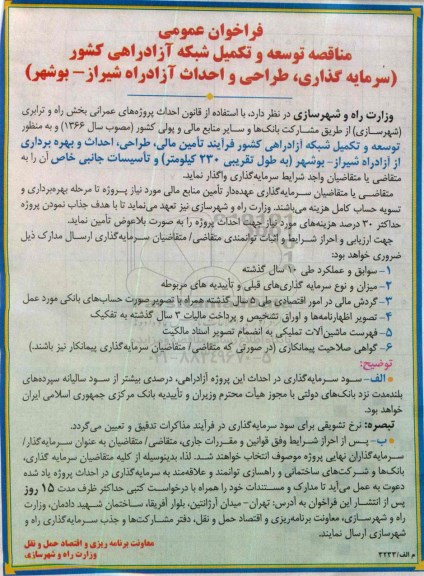 فراخوان عمومی
مناقصه توسعه و تکمیل شبکه آزادراهی کشور
(سرمایه گذاری، طراحی و احداث آزادراه شیراز– بوشهر)
وزارت راه و شهرسازی در نظر دارد، با استفاده از قانون احداث پروژه‌های عمرانی بخش راه و ترابری
(شهرسازی) از طریق مشارکت بانک‌ها و سایر منابع مالی و پولی کشور (مصوب سال ۱۳۶۶) و به منظور
توسعه و تکمیل شبکه آزادراهی کشور فرایند تأمین مالی، طراحی، احداث و بهره برداری
از آزادراه شیراز– بوشهر (به طول تقریبی ۲۳۰ کیلومتر) و تأسیسات جانبی خاص آن را به
متقاضی یا متقاضیان واجد شرایط سرمایه‌گذاری واگذار نماید.
متقاضی یا متقاضیان سرمایه‌گذاری عهده‌دار تأمین منابع مالی مورد نیاز پروژه تا مرحله بهره‌برداری و
تسویه حساب کامل هزینه می‌باشند. وزارت راه و شهرسازی نیز تعهد می‌نماید تا با هدف جذاب نمودن پروژه
حداکثر ۳۰ درصد هزینه‌های مورد نیاز جهت احداث پروژه را به صورت بلاعوض تأمین نماید.
جهت ارزیابی و احراز شرایط و اثبات توانمندی متقاضی/ متقاضیان سرمایه‌گذاری ارسال مدارک ذیل
ضروری خواهد بود:
۱– سوابق و عملکرد طی ۱۰ سال گذشته
۲– میزان و نوع سرمایه گذاری‌های قبلی و تأییدیه های مربوطه
۳– گردش مالی در امور اقتصادی طی ۵ سال گذشته همراه با تصویر صورت حساب‌های بانکی مورد عمل
۴– تصویر اظهارنامه‌ها و اوراق تشخیص و پرداخت مالیات ۳ سال گذشته به تفکیک
۵– فهرست ماشین‌آلات تملیکی به انضمام تصویر اسناد مالکیت
۶– گواهی صلاحیت پیمانکاری (در صورتی که متقاضی/ متقاضیان سرمایه‌گذاری پیمانکار نیز باشند)
توضیح:
الف– سود سرمایه‌گذاری در احداث این پروژه آزادراهی، درصدی بیشتر از سود سالیانه سپرده‌های
بلندمدت نزد بانک‌های دولتی با مجوز هیأت محترم وزیران و تأییدیه بانک مرکزی جمهوری اسلامی ایران
خواهد بود.
تبصره: نرخ تشویقی برای سود سرمایه‌گذاری در فرآیند مذاکرات تدقیق و تعیین می‌گردد.
ب– پس از احراز شرایط وفق قوانین و مقررات جاری، متقاضی/ متقاضیان به عنوان سرمایه‌گذار/
سرمایه‌گذاران نهایی پروژه موصوف انتخاب خواهند شد. لذا، بدینوسیله از کلیه متقاضیان سرمایه گذاری،
بانک‌ها و شرکت‌های ساختمانی و راهسازی توانمند و علاقه‌مند به سرمایه‌گذاری در احداث پروژه یاد شده
دعوت به عمل می‌آید تا مدارک و مستندات خود را همراه با درخواست کتبی حداکثر ظرف مدت ۱۵ روز
پس از انتشار این فراخوان به آدرس: تهران– میدان آرژانتین، بلوار آفریقا، ساختمان شهید دادمان، وزارت
راه و شهرسازی، معاونت برنامه‌ریزی و اقتصاد حمل و نقل، دفتر مشارکت‌ها و جذب سرمایه‌گذاری راه و
شهرسازی ارسال نمایند.
معاونت برنامه ریزی و اقتصاد حمل و نقل
وزارت راه و شهرسازی
م الف/۳۲۳۳